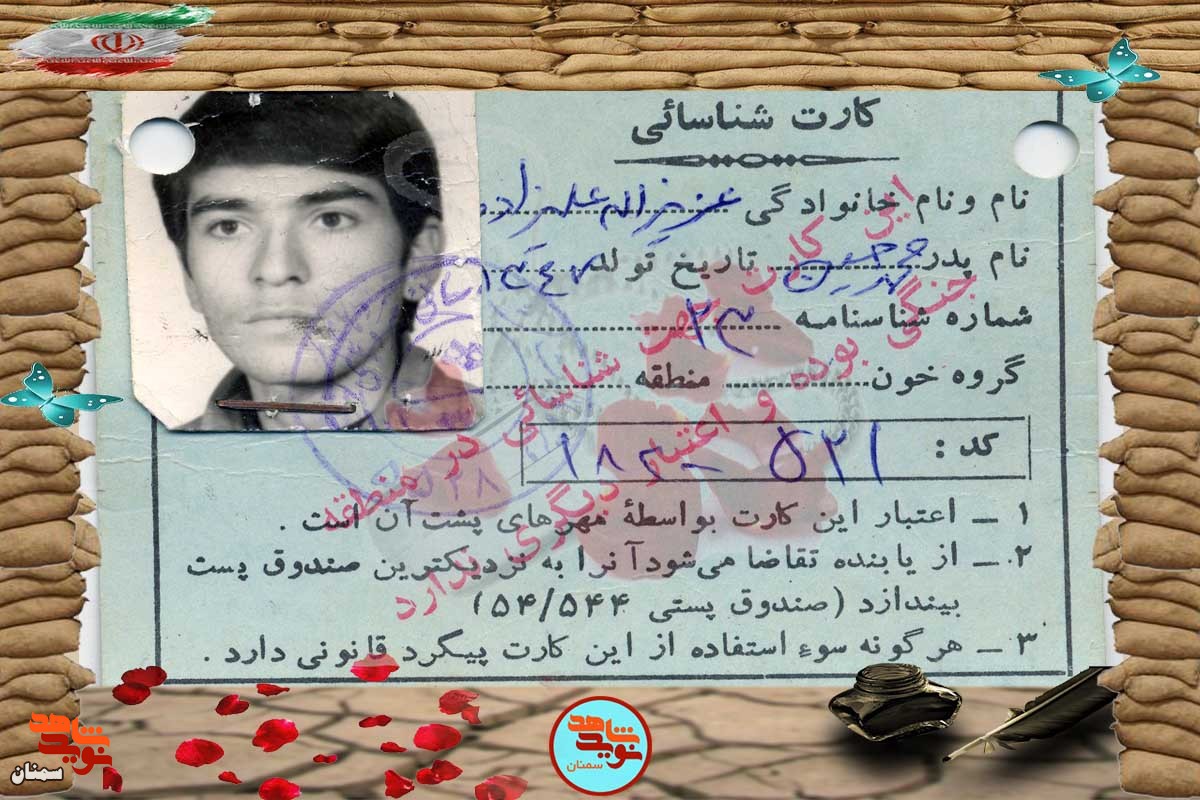 کارت شناسائی
نام ونام خانوادگی عزیزاله علیزاده
نام پدر محمدحسین تاریخ تولد ۱۳۴۲
شماره شناسنامه ۲۳
گروه خون منطقه
کد : ۵۲۱ - ۱۸۳
۱ ــ اعتبار این کارت بواسطهٔ مهرهای پشت آن است .
۲ ــ از یابنده تقاضا می‌شود آنرا به نزدیکترین صندوق پست
بیندازد (صندوق پستی ۵۴/۵۴۴)
۳ ــ هرگونه سوءِ استفاده از این کارت پیگرد قانونی دارد .
این کارت جهت شناسائی در منطقه
جنگی بوده و اعتبار دیگری ندارد
نوید شاهد
سمنان
نوید شاهد
سمنان